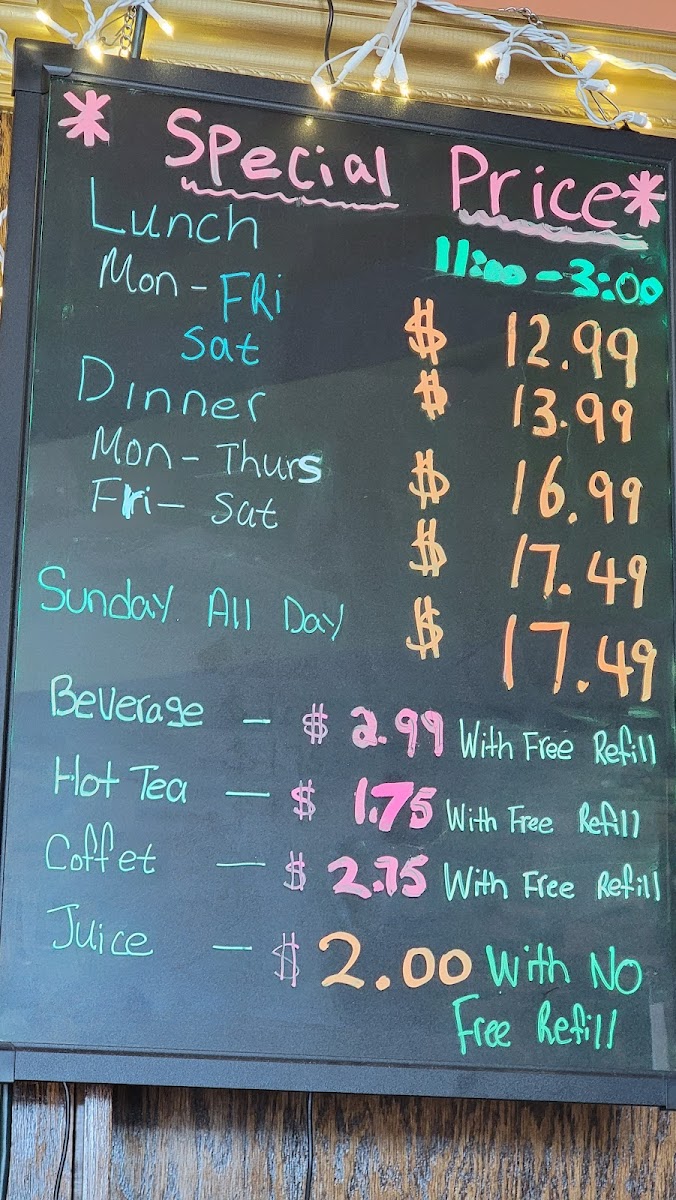 * Special Price *
Lunch 11:00 - 3:00
Mon - FRi $ 12.99
Sat $ 13.99
Dinner
Mon - Thurs $ 16.99
Fri - Sat $ 17.49
Sunday All Day $ 17.49
Beverage - $ 2.99 With Free Refill
Hot Tea - $ 1.75 With Free Refill
Coffet - $ 2.75 With Free Refill
Juice - $ 2.00 With NO
Free Refill